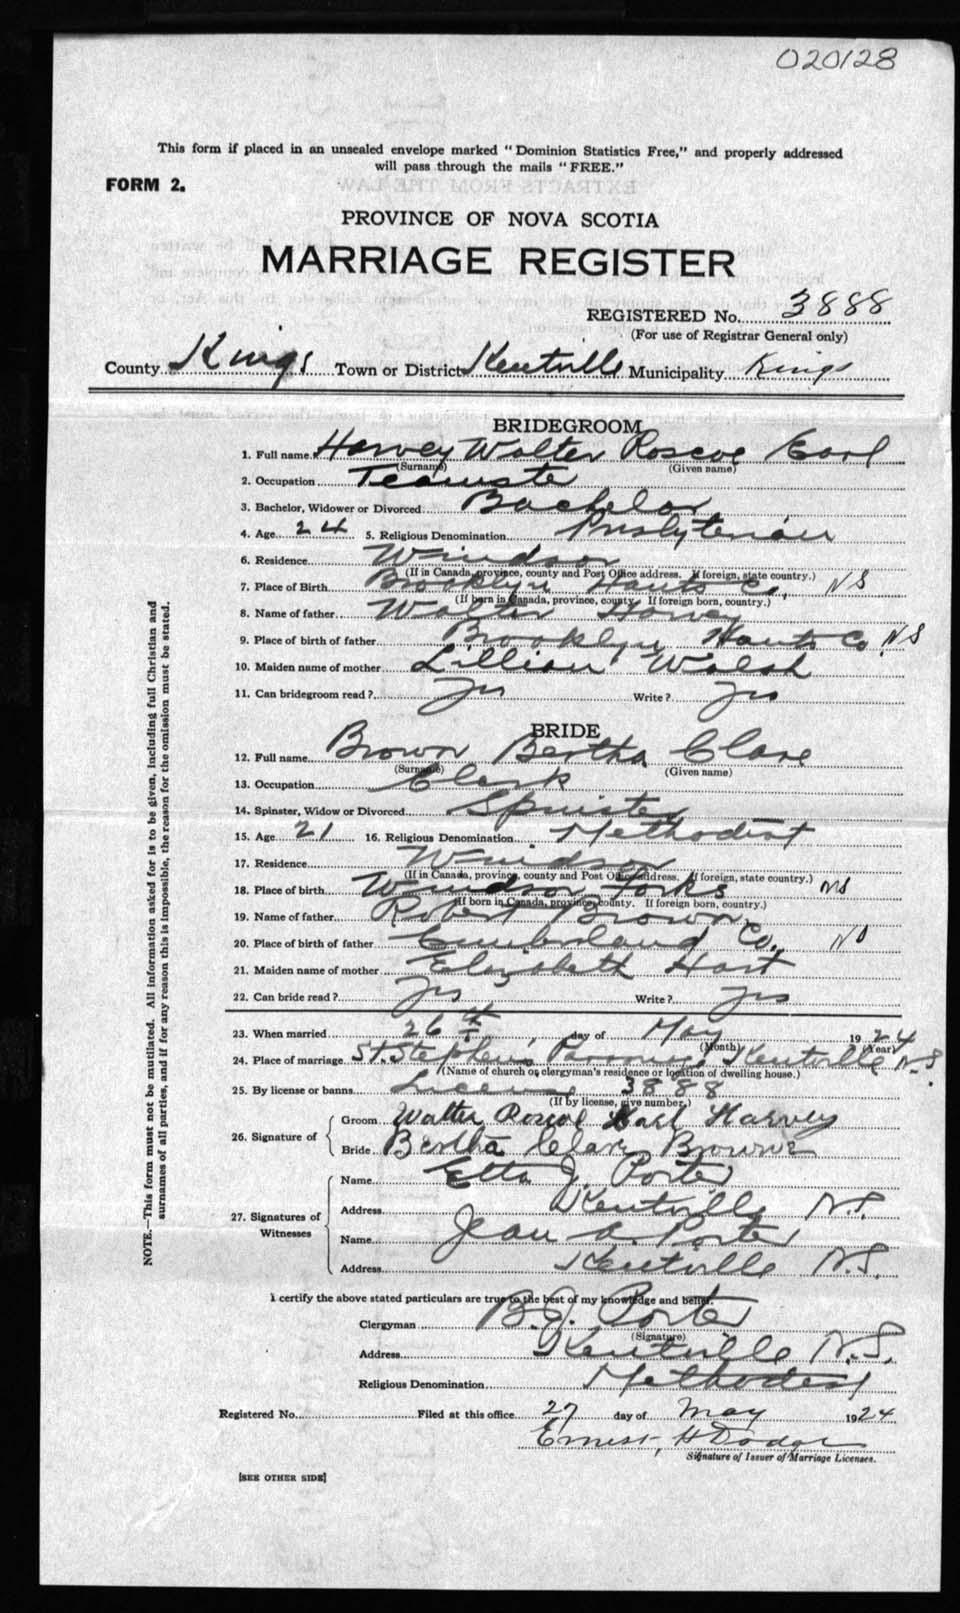 020128
This form if placed in an unsealed envelope marked "Dominion Statistics Free," and properly addressed
will pass through the mails "FREE."
FORM 2.
PROVINCE OF NOVA SCOTIA
MARRIAGE REGISTER
REGISTERED No. 3888
(For use of Registrar General only)
County Kings Town or District Kentville Municipality Kings
BRIDEGROOM
1. Full name Harvey Walter Roscoe Earl
(Surname) (Given name)
2. Occupation Teamster
3. Bachelor, Widower or Divorced Bachelor
4. Age 24 5. Religious Denomination Presbyterian
6. Residence Windsor
(If in Canada, province, county and Post Office address. If foreign, state country.)
7. Place of Birth Brooklyn Hants Co. NS
(If born in Canada, province, county. If foreign born, country.)
8. Name of father Walter Harvey
9. Place of birth of father Brooklyn Hants Co. NS
10. Maiden name of mother Lillian Walsh
11. Can bridegroom read? Yes Write? Yes
BRIDE
12. Full name Brown Bertha Clare
(Surname) (Given name)
13. Occupation Clerk
14. Spinster, Widow or Divorced Spinster
15. Age 21 16. Religious Denomination Methodist
17. Residence Windsor
(If in Canada, province, county and Post Office address. If foreign, state country.)
18. Place of birth Windsor Forks NS
(If born in Canada, province, county. If foreign born, country.)
19. Name of father Robert Brown
20. Place of birth of father Cumberland Co. NS
21. Maiden name of mother Elizabeth Hart
22. Can bride read? Yes Write? Yes
23. When married 26th day of May 1924
(Month) (Year)
24. Place of marriage St. Stephen's Parsonage Kentville N.S.
(Name of church or clergyman's residence or location of dwelling house.)
25. By license or banns License 3888
(If by license, give number.)
26. Signature of
Groom Walter Roscoe Earl Harvey
Bride Bertha Clare Browne
27. Signatures of Witnesses
Name Etta J. Porter
Address Kentville N.S.
Name Jean A. Porter
Address Kentville N.S.
I certify the above stated particulars are true to the best of my knowledge and belief.
Clergyman B.J. Porter
(Signature)
Address Kentville N.S.
Religious Denomination Methodist
Registered No. Filed at this office 27 day of May 1924
Ernest H Dodge
Signature of Issuer of Marriage Licenses.
[SEE OTHER SIDE]
NOTE.—This form must not be mutilated. All information asked for is to be given, including full Christian and
surnames of all parties, and if for any reason this is impossible, the reason for the omission must be stated.